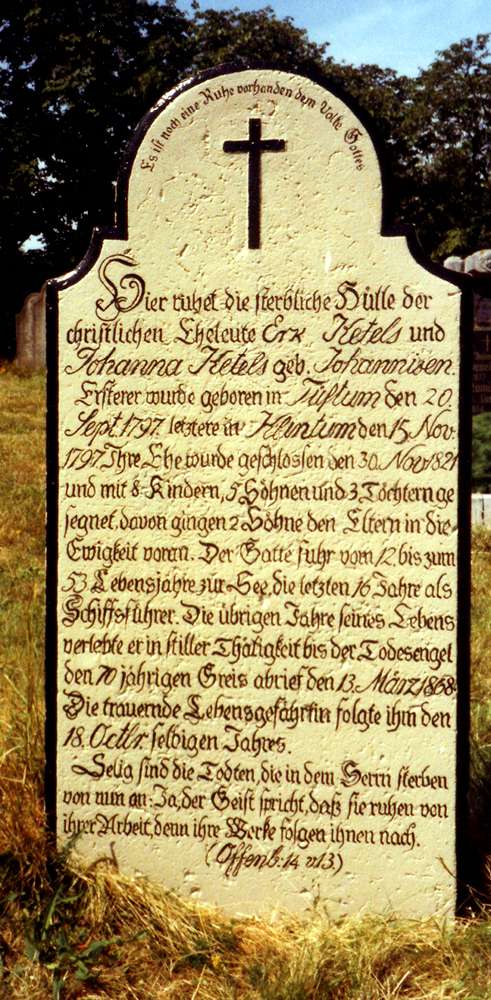 Es ist noch eine Ruhe vorhanden dem Volke Gottes
Hier ruhet die sterbliche Hülle der
christlichen Eheleute Erk Ketels und
Johanna Ketels geb. Johannisen.
Ersterer wurde geboren in Tüftum den 20.
Sept. 1797. letztere in Klintum den 15. Nov.
1797. Ihre Ehe wurde geschlossen den 30. Nov. 1821
und mit 8 Kindern, 5 Söhnen und 3 Töchtern ge
segnet, davon gingen 2 Söhne den Eltern in die
Ewigkeit voran. Der Gatte fuhr vom 12. bis zum
53. Lebensjahre zur See, die letzten 16 Jahre als
Schiffsführer. Die übrigen Jahre seines Lebens
verlebte er in stiller Thätigkeit bis der Todesengel
den 70 jährigen Greis abrief den 13. März 1868.
Die trauernde Lebensgefährtin folgte ihm den
18. Octbr selbigen Jahres.
Selig sind die Todten, die in dem Herrn sterben
von nun an: Ja, der Geist spricht, daß sie ruhen von
ihrer Arbeit, denn ihre Werke folgen ihnen nach.
(Offenb. 14 v. 13.)